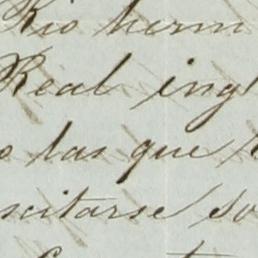 Rio herm
Real ingl
o las que
scitarse so